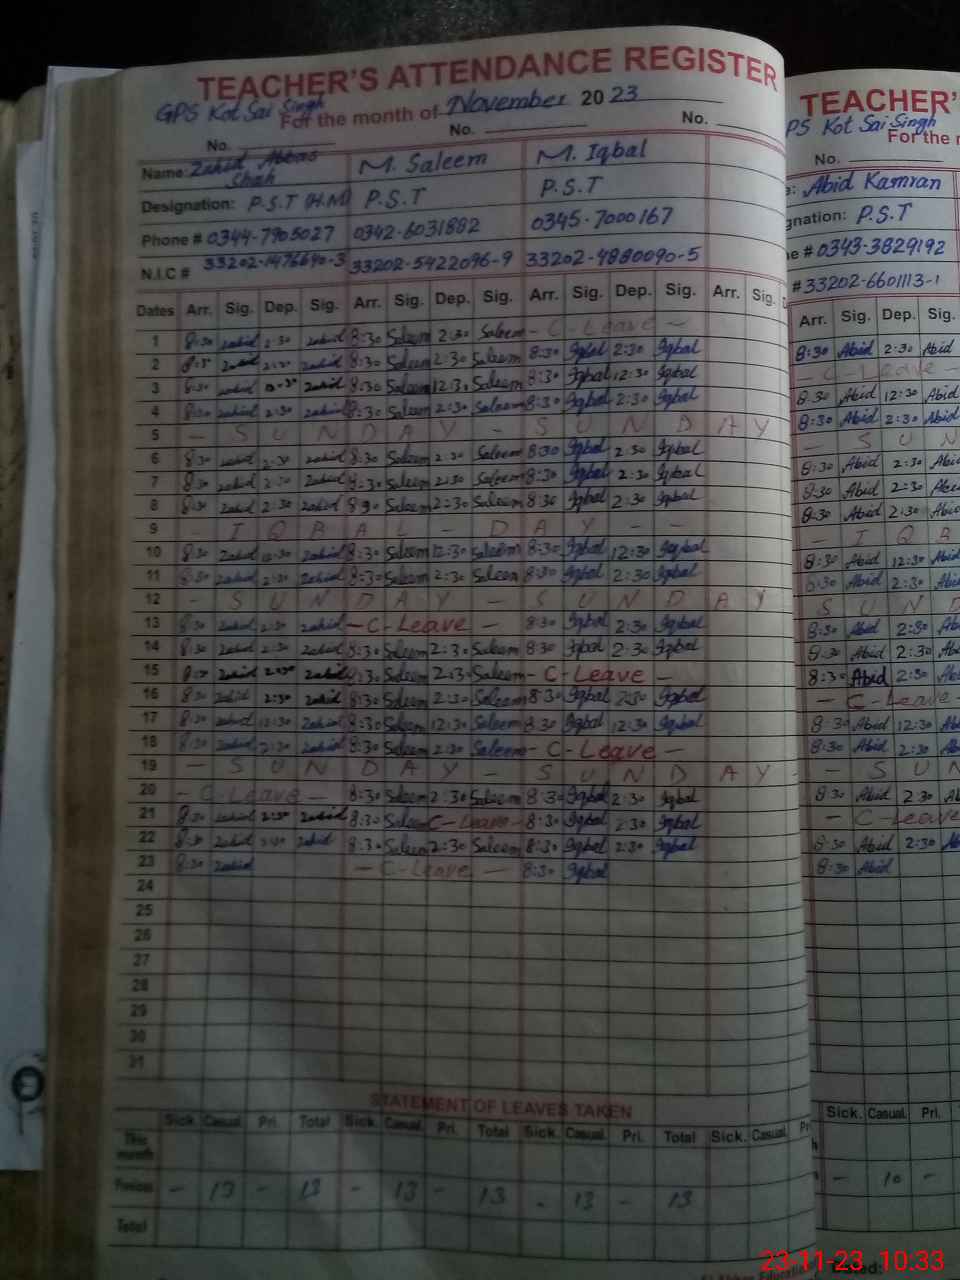 TEACHER'S ATTENDANCE REGISTER
GPS Kot Sai Singh
For the month of November 2023
No. No. No.
Name: Zahid Abbas Shah M. Saleem M. Iqbal
Designation: P.S.T (H.M) P.S.T P.S.T
Phone # 0344-7905027 0342-6031882 0345-7000167
N.I.C # 33202-1476690-3 33202-5422096-9 33202-4880090-5
Dates Arr. Sig. Dep. Sig. Arr. Sig. Dep. Sig. Arr. Sig. Dep. Sig. Arr. Sig.
1 8:30 zahid 2:30 zahid 8:30 Saleem 2:30 Saleem - C-Leave -
2 zahid 2:30 zahid 8:30 Saleem 2:30 Saleem 8:30 Iqbal 2:30 Iqbal
3 8:30 zahid 12:30 zahid 8:30 Saleem 12:30 Saleem 8:30 Iqbal 12:30 Iqbal
4 8:30 zahid 2:30 zahid 8:30 Saleem 2:30 Saleem 8:30 Iqbal 2:30 Iqbal
5 - S U N D A Y - S U N D A Y
6 8:30 zahid 2:30 zahid 8:30 Saleem 2:30 Saleem 8:30 Iqbal 2:30 Iqbal
7 8:30 zahid 2:30 zahid 8:30 Saleem 2:30 Saleem 8:30 Iqbal 2:30 Iqbal
8 8:30 zahid 2:30 zahid 8:30 Saleem 2:30 Saleem 8:30 Iqbal 2:30 Iqbal
9 - I Q B A L - D A Y - -
10 8:30 zahid 12:30 zahid 8:30 Saleem 12:30 Saleem 8:30 Iqbal 12:30 Iqbal
11 8:30 zahid 2:30 zahid 8:30 Saleem 2:30 Saleem 8:30 Iqbal 2:30 Iqbal
12 - S U N D A Y - S U N D A Y
13 8:30 zahid 2:30 zahid - C-Leave - 8:30 Iqbal 2:30 Iqbal
14 8:30 zahid 2:30 zahid 8:30 Saleem 2:30 Saleem 8:30 Iqbal 2:30 Iqbal
15 8:30 zahid 2:30 zahid 8:30 Saleem 2:30 Saleem - C-Leave -
16 8:30 zahid 2:30 zahid 8:30 Saleem 2:30 Saleem 8:30 Iqbal 2:30 Iqbal
17 8:30 zahid 12:30 zahid 8:30 Saleem 12:30 Saleem 8:30 Iqbal 12:30 Iqbal
18 8:30 zahid 2:30 zahid 8:30 Saleem 2:30 Saleem - C-Leave -
19 - S U N D A Y - S U N D A Y
20 - C-Leave - 8:30 Saleem 2:30 Saleem 8:30 Iqbal 2:30 Iqbal
21 8:30 zahid 2:30 zahid 8:30 Saleem C-Leave - 8:30 Iqbal 2:30 Iqbal
22 8:30 zahid 2:30 zahid 8:30 Saleem 2:30 Saleem 8:30 Iqbal 2:30 Iqbal
23 8:30 zahid - C-Leave - 8:30 Iqbal
24
25
26
27
28
29
30
31
STATEMENT OF LEAVES TAKEN
Sick. Casual. Pri. Total Sick. Casual. Pri. Total Sick. Casual. Pri. Total Sick. Casual.
This month
Previous - 13 - 13 - 13 - 13 - 13 - 13
Total
TEACHER'
PS Kot Sai Singh
For the
No.
Abid Kamran
gnation: P.S.T
# 0343-3829192
# 33202-6601113-1
Arr. Sig. Dep. Sig.
8:30 Abid 2:30 Abid
- C-Leave -
8:30 Abid 12:30 Abid
8:30 Abid 2:30 Abid
- S U N
8:30 Abid 2:30
8:30 Abid 2:30
8:30 Abid 2:30
- I Q B
8:30 Abid 12:30
8:30 Abid 2:30
S U N D
8:30 Abid 2:30
8:30 Abid 2:30
8:30 Abid 2:30
- C-Leave -
8:30 Abid 12:30
8:30 Abid 2:30
- S U N
8:30 Abid 2:30
- C-Leave
8:30 Abid 2:30
8:30 Abid
Sick. Casual. Pri.
- 10 -
23-11-23 10:33